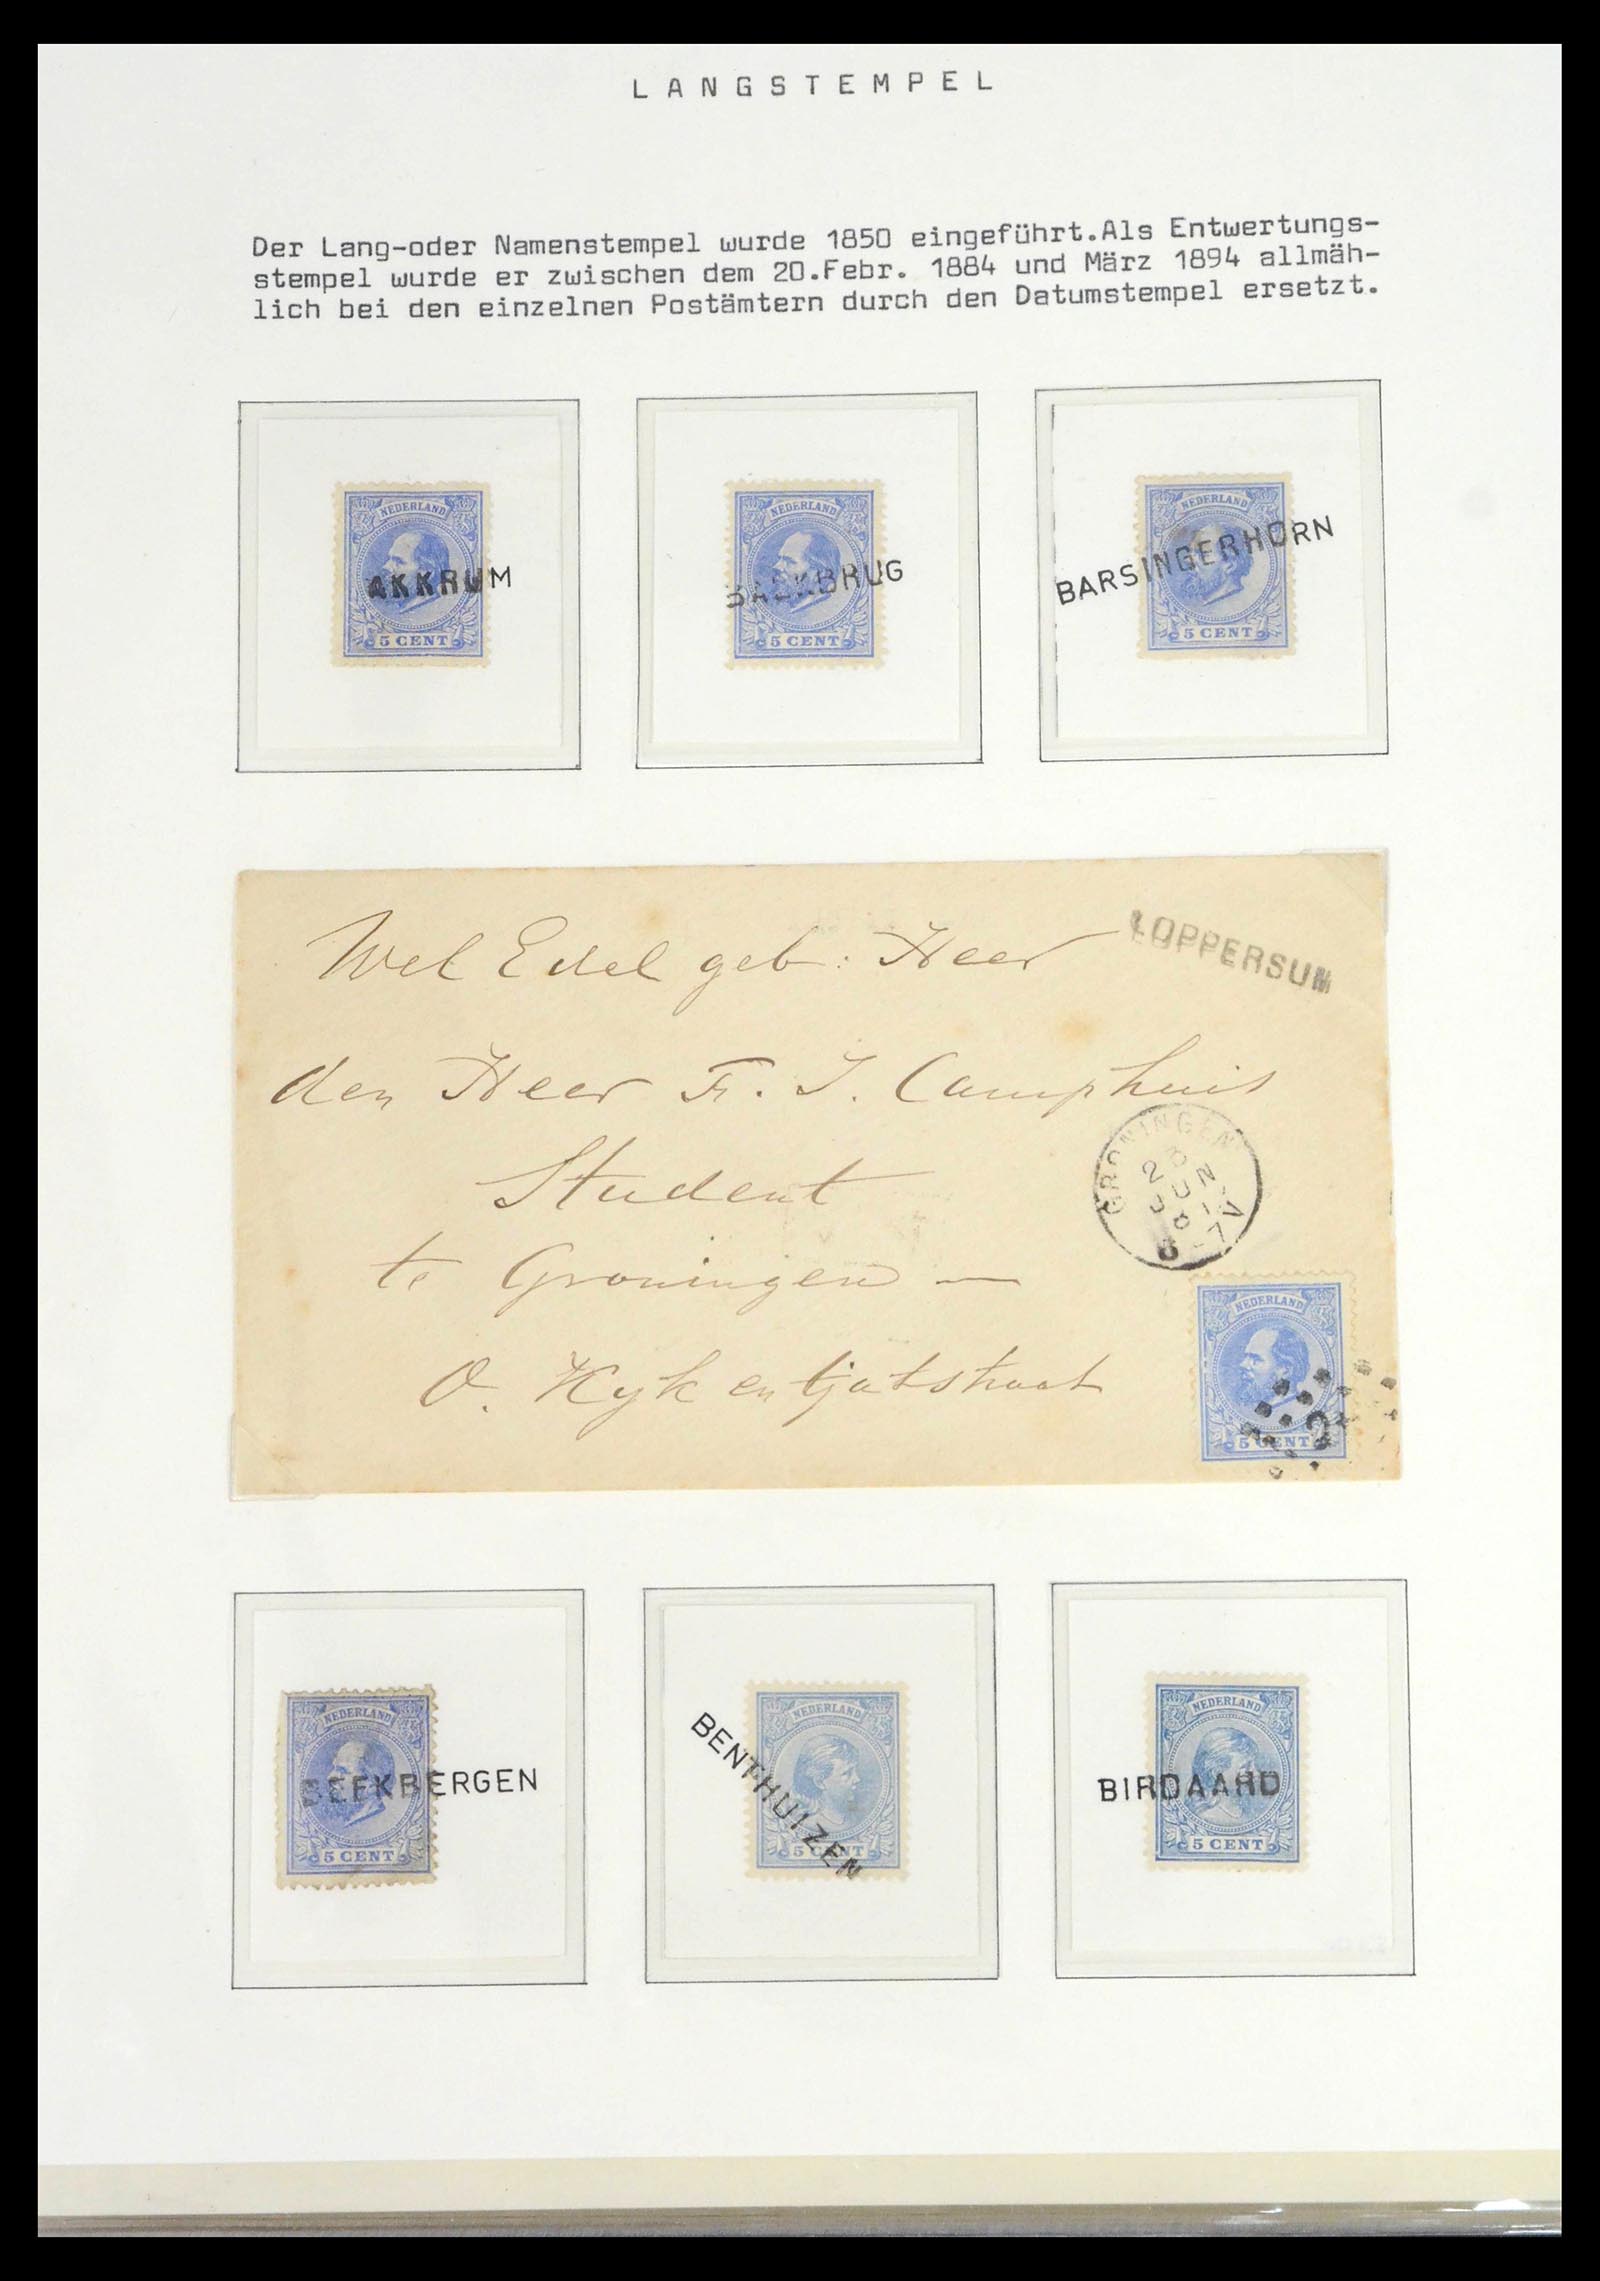 LANGSTEMPEL
Der Lang-oder Namenstempel wurde 1850 eingeführt.Als Entwertungs-
stempel wurde er zwischen dem 20.Febr. 1884 und März 1894 allmäh-
lich bei den einzelnen Postämtern durch den Datumstempel ersetzt.
NEDERLAND
AKKRUM
5 CENT
NEDERLAND
BALKBRUG
5 CENT
NEDERLAND
BARSINGERHORN
5 CENT
LOPPERSUM
Wel Edel geb: Heer
den Heer F. J. Camphuis
Student
te Groningen —
O. Kyk en tjatstraat
GRONINGEN
JUN
NEDERLAND
5 CENT
NEDERLAND
BEEKBERGEN
5 CENT
NEDERLAND
BENTHUIZEN
5 CENT
NEDERLAND
BIRDAARD
5 CENT